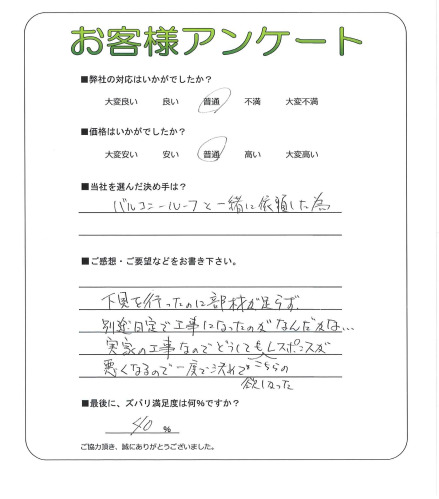 お客様アンケート
■弊社の対応はいかがでしたか？
大変良い 良い 普通 不満 大変不満
■価格はいかがでしたか？
大変安い 安い 普通 高い 大変高い
■当社を選んだ決め手は？
バルコニールーフと一緒に依頼した為
■ご感想・ご要望などをお書き下さい。
下見を行ったのに部材が足らず、
別途日定で工事になったのがなんだかな…
実家の工事なのでどうしてもレスポンスが
悪くなるので一度で決れて
こちらの
欲しかった
■最後に、ズバリ満足度は何％ですか？
40 %
ご協力頂き、誠にありがとうございました。